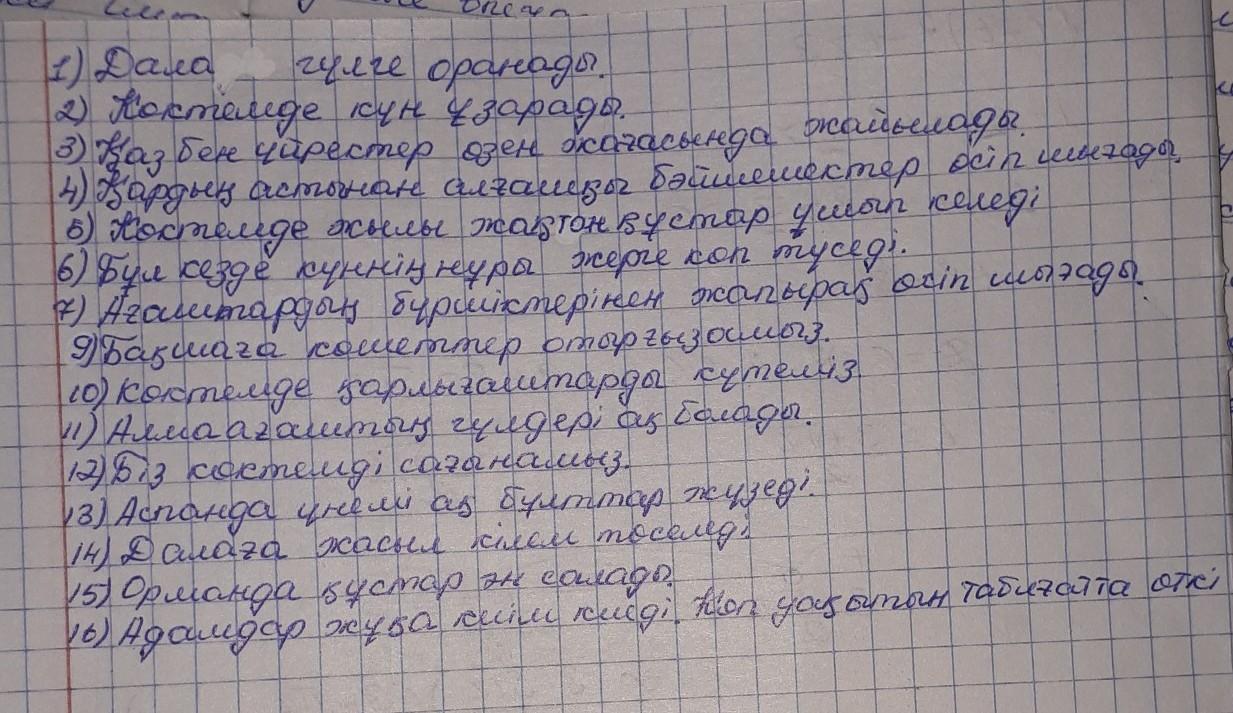 1) Дала гүлге оранады.
2) Көктемде күн ұзарады.
3) Қаз бен үйректер өзен жағасында жайылады.
4) Қардың астынан алғашқы бәйшешектер өсіп шығады.
5) Көктемде жылы жақтан құстар ұшып келеді
6) Бұл кезде күннің нұры жерге көп түседі.
7) Ағаштардың бүршіктерінен жапырақ өсіп шығады.
9) Бақшаға көшеттер отырғызамыз.
10) Көктемде қарлығаштарды күтеміз
11) Алма ағаштың гүлдері ақ болады.
12) Біз көктемді сағынамыз.
13) Аспанда үнемі ақ бұлттар жүзеді.
14) Далаға жасыл кілем төселеді
15) Орманда құстар ән салады.
16) Адамдар жұқа киім киеді. Көп уақытын табиғатта өткі